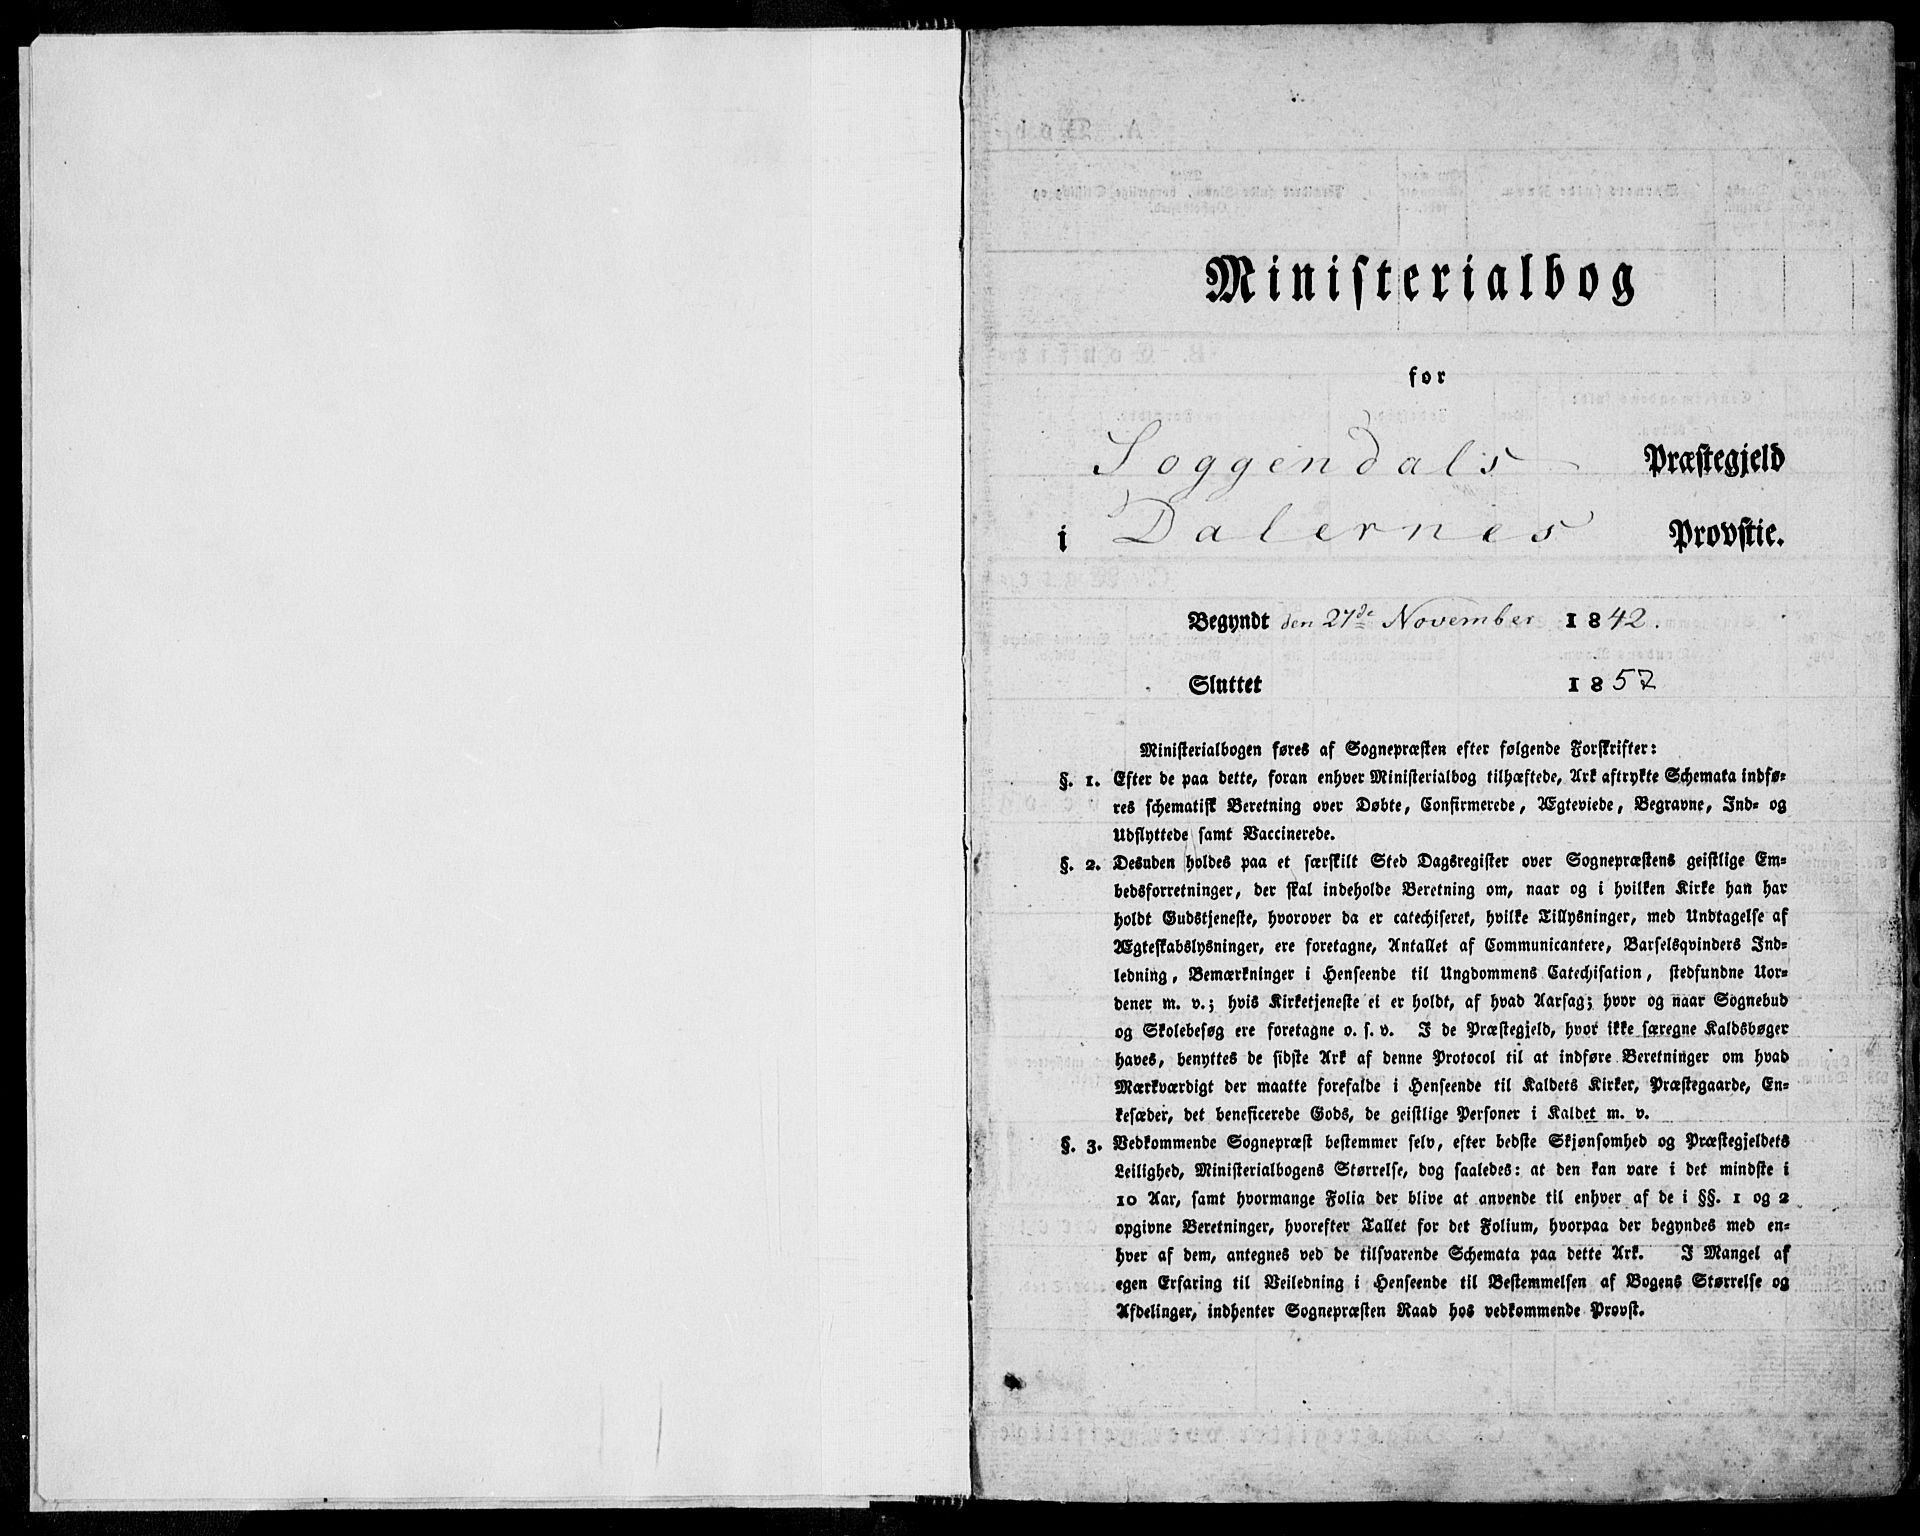 Ministerialbog
for
Soggendals Præstegjeld
i Dalernes Provstie.
Begyndt den 27de November 1842.
Sluttet 1857
Ministerialbogen føres af Sognepræsten efter følgende Forskrifter:
§. 1. Efter de paa dette, foran enhver Ministerialbog tilhæftede, Ark aftrykte Schemata indfø-
res schematisk Beretning over Døbte, Confirmerede, Ægteviede, Begravne, Ind- og
Udflyttede samt Vaccinerede.
§. 2. Desuden holdes paa et særskilt Sted Dagsregister over Sognepræstens geistlige Em-
bedsforretninger, der skal indeholde Beretning om, naar og i hvilken Kirke han har
holdt Gudstjeneste, hvorover da er catechiseret, hvilke Tillysninger, med Undtagelse af
Ægteskabslysninger, ere foretagne, Antallet af Communicantere, Barselsqvinders Ind-
ledning, Bemærkninger i Henseende til Ungdommens Catechisation, stedfundne Uor-
dener m. v.; hvis Kirketjeneste ei er holdt, af hvad Aarsag; hvor og naar Sognebud
og Skolebesøg ere foretagne o. s. v. I de Præstegjeld, hvor ikke særegne Kaldsbøger
haves, benyttes de sidste Ark af denne Protocol til at indføre Beretninger om hvad
Mærkværdigt der maatte forefalde i Henseende til Kaldets Kirker, Præstegaarde, En-
kesæder, det beneficerede Gods, de geistlige Personer i Kaldet m. v.
§. 3. Vedkommende Sognepræst bestemmer selv, efter bedste Skjønsomhed og Præstegjeldets
Leilighed, Ministerialbogens Størrelse, dog saaledes: at den kan vare i det mindste i
10 Aar, samt hvormange Folia der blive at anvende til enhver af de i §§. 1 og 2
opgivne Beretninger, hvorefter Tallet for det Folium, hvorpaa der begyndes med en-
hver af dem, antegnes ved de tilsvarende Schemata paa dette Ark. I Mangel af
egen Erfaring til Veiledning i Henseende til Bestemmelsen af Bogens Størrelse og
Afdelinger, indhenter Sognepræsten Raad hos vedkommende Provst.